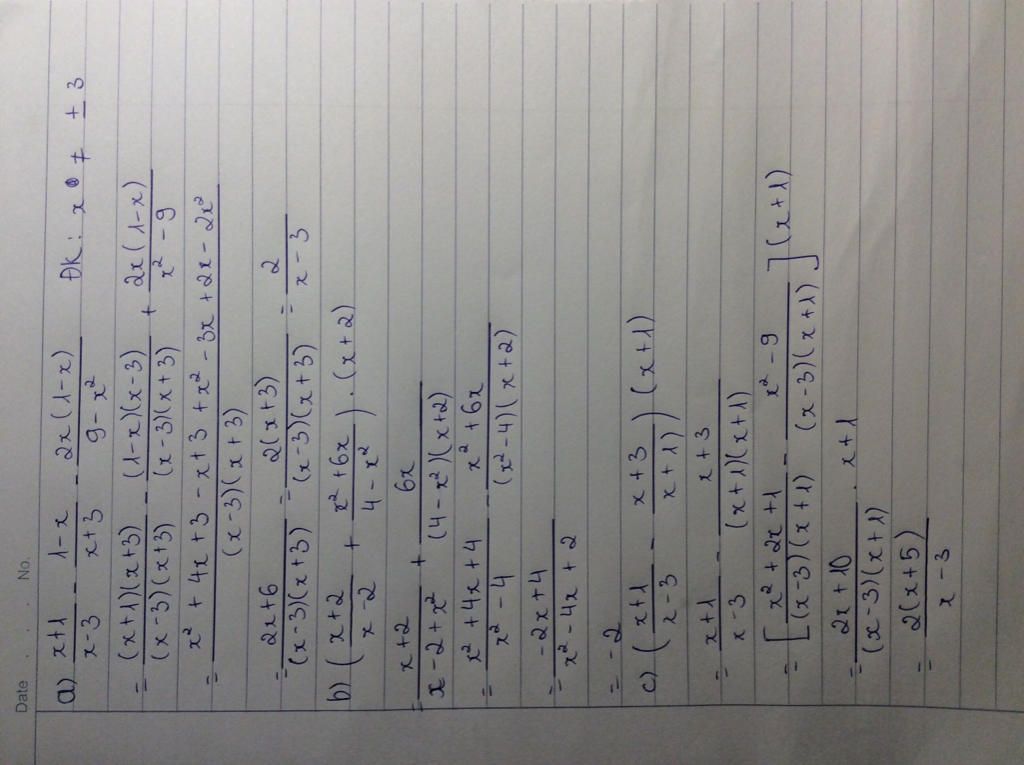 Date . . . No.
a) \frac{x+1}{x-3} - \frac{1-x}{x+3} - \frac{2x(1-x)}{9-x^2} ĐK: x ≠ ± 3
= \frac{(x+1)(x+3)}{(x-3)(x+3)} - \frac{(1-x)(x-3)}{(x-3)(x+3)} + \frac{2x(1-x)}{x^2-9}
= \frac{x^2+4x+3-x+3+x^2-3x+2x-2x^2}{(x-3)(x+3)}
= \frac{2x+6}{(x-3)(x+3)} = \frac{2(x+3)}{(x-3)(x+3)} = \frac{2}{x-3}
b) (\frac{x+2}{x-2} + \frac{x^2+6x}{4-x^2}).(x+2)
= \frac{x+2}{x-2+x^2} + \frac{6x}{(4-x^2)(x+2)}
= \frac{x^2+4x+4}{x^2-4} - \frac{x^2+6x}{(x^2-4)(x+2)}
= \frac{-2x+4}{x^2-4x+2}
= -2
c) (\frac{x+1}{x-3} - \frac{x+3}{x+1)})(x+1)
= \frac{x+1}{x-3} - \frac{x+3}{(x+1)(x+1)}
= [\frac{x^2+2x+1}{(x-3)(x+1)} - \frac{x^2-9}{(x-3)(x+1)}](x+1)
= \frac{2x+10}{(x-3)(x+1)} . x+1
= \frac{2(x+5)}{x-3}